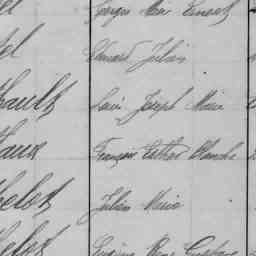 Georges Marie Ernest
el Edouard Julien
hault Louis Joseph Marie
haux François Esther Blanche
helot Julien Marie
helot Eugène Rene Gustave